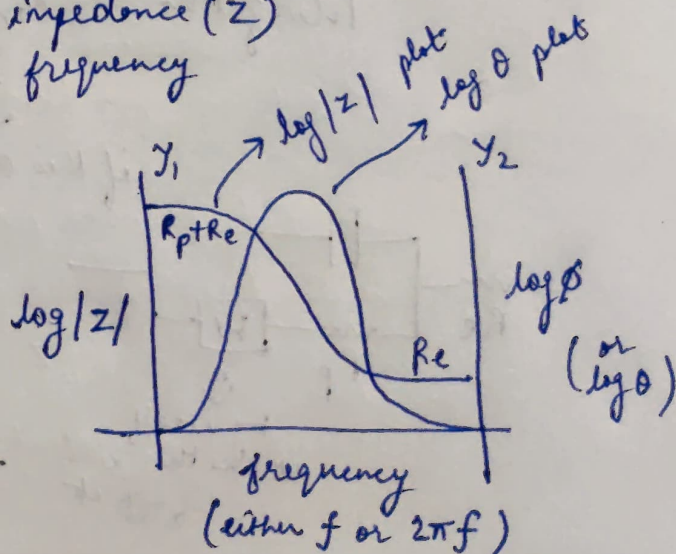 impedance (Z)
frequency
log|z| plot
log θ plot
Y1
Y2
Rp+Re
log|Z|
Re
logφ
(or log θ)
frequency
(either f or 2πf)